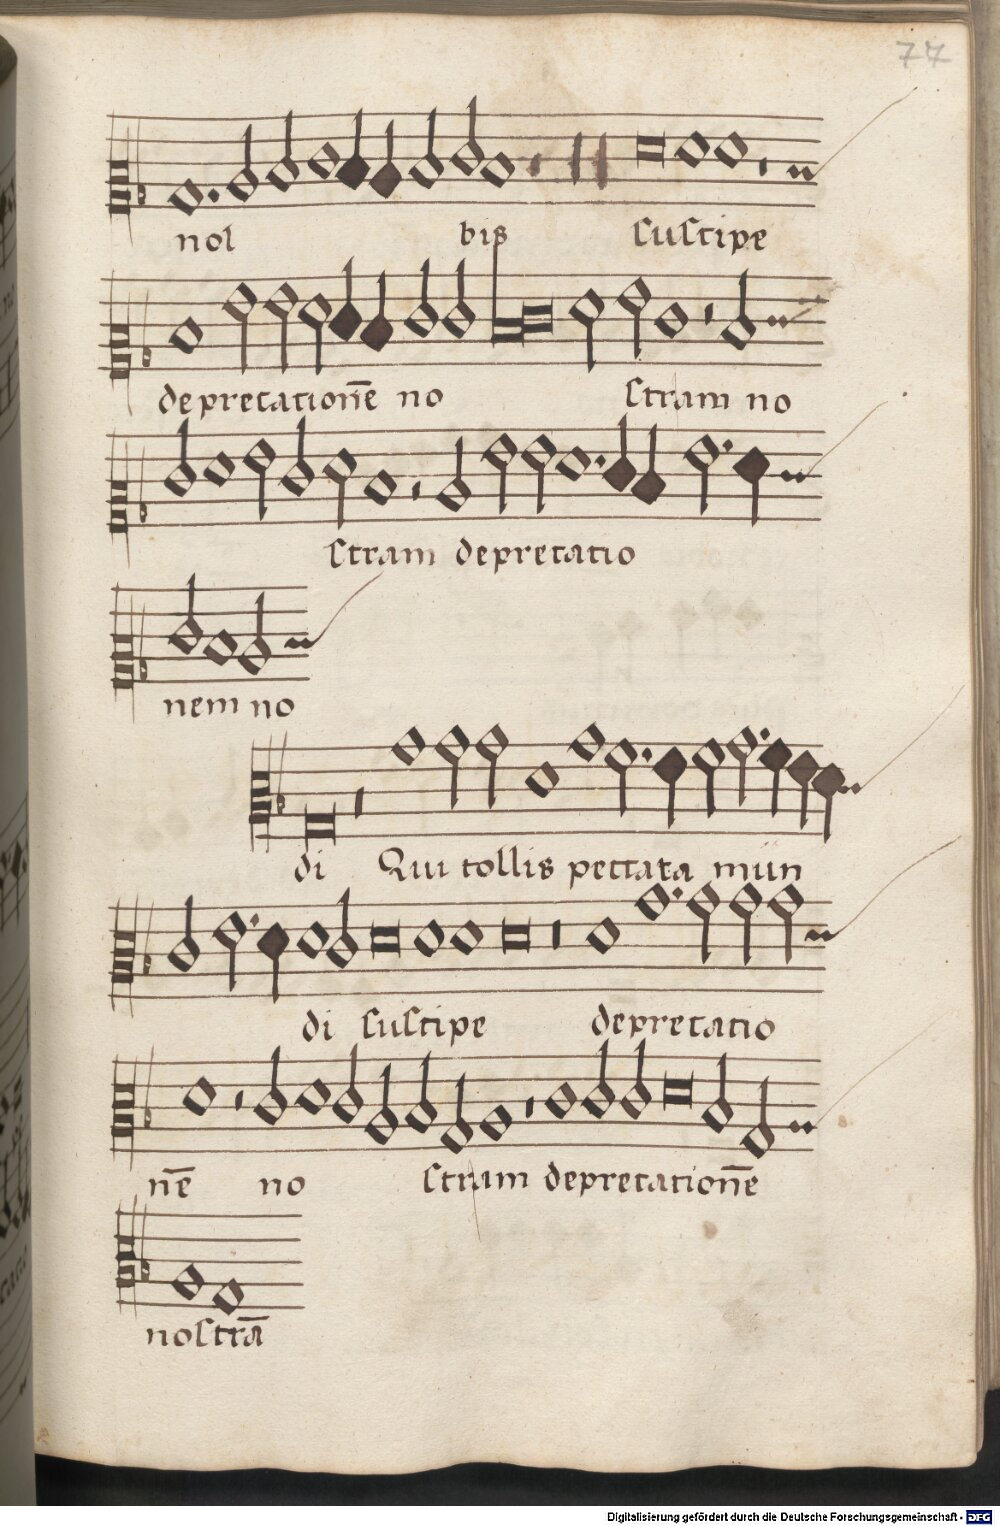 77
nol bis suscipe
deprecationē no stram no
stram deprecatio
nem no
di Qui tollis peccata mun
di suscipe deprecatio
nē no stram deprecationē
nostrā
Digitalisierung gefördert durch die Deutsche Forschungsgemeinschaft - DFG